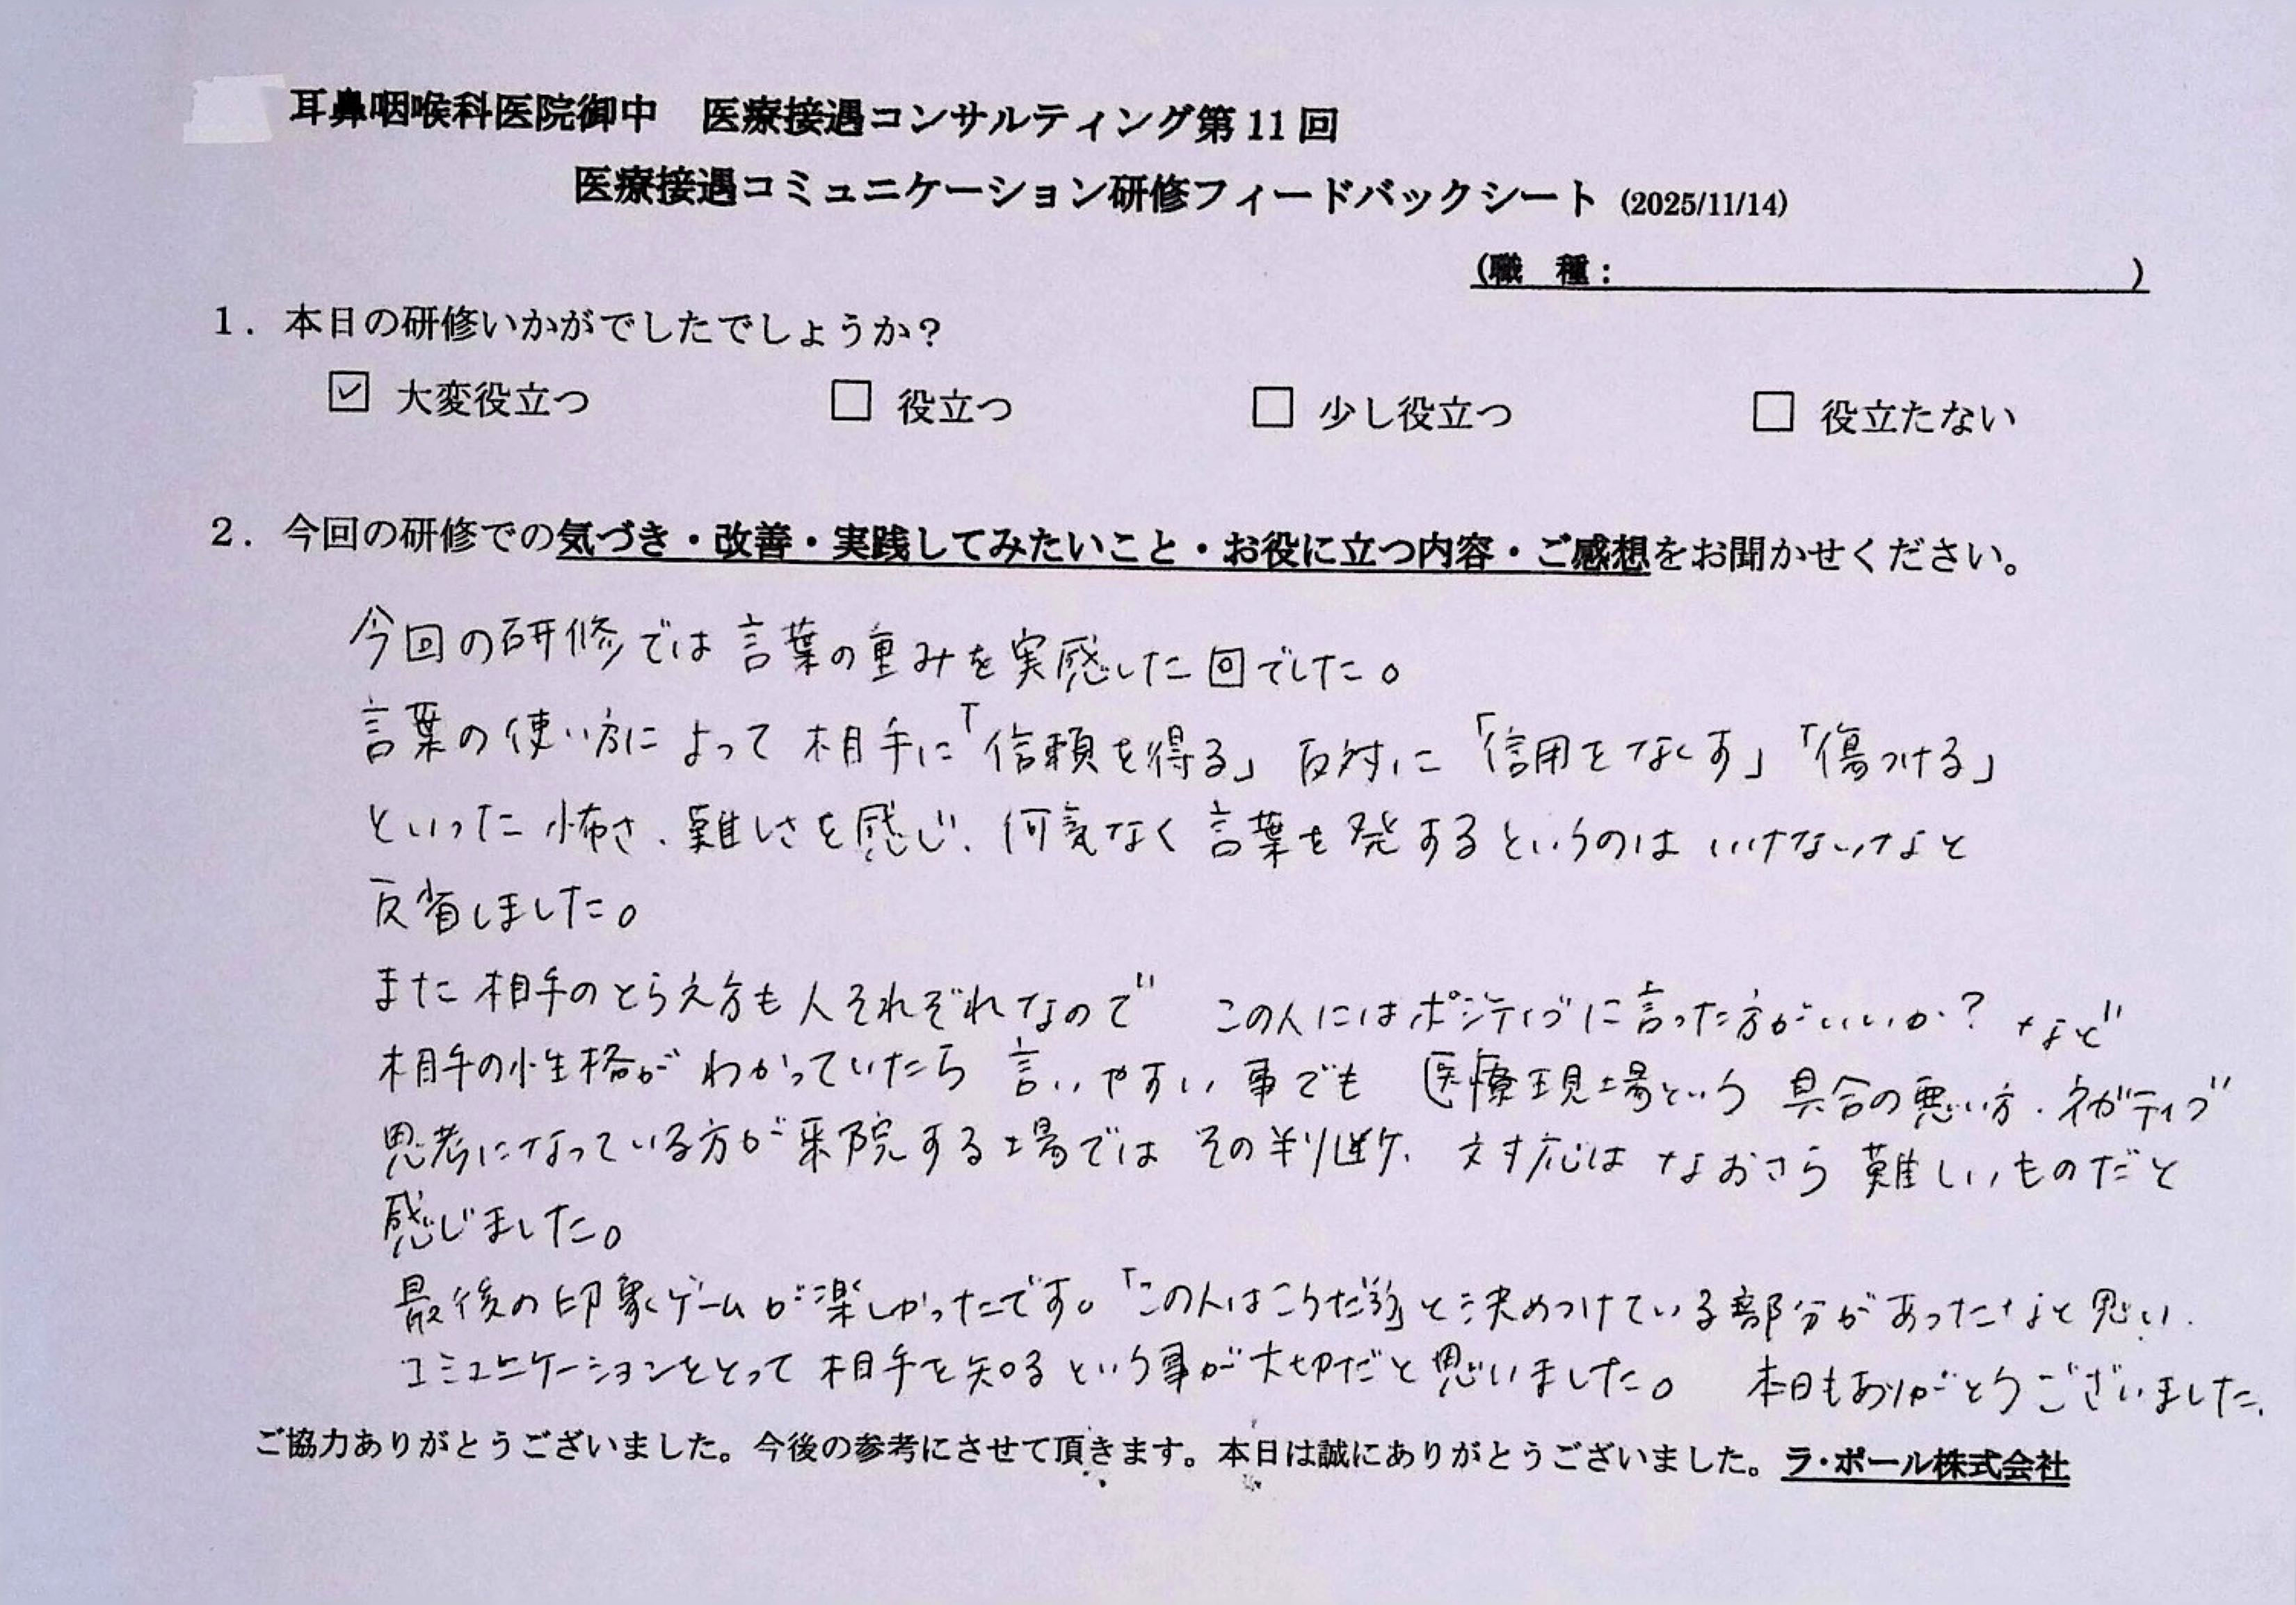 耳鼻咽喉科医院御中　医療接遇コンサルティング第11回
医療接遇コミュニケーション研修フィードバックシート (2025/11/14)
(職　種：　　　　　　　　)
1．本日の研修いかがでしたでしょうか？
☑ 大変役立つ　　□ 役立つ　　□ 少し役立つ　　□ 役立たない
2．今回の研修での気づき・改善・実践してみたいこと・お役に立つ内容・ご感想をお聞かせください。
今回の研修では言葉の重みを実感した回でした。
言葉の使い方によって相手に「信頼を得る」反対に「信用をなくす」「傷つける」
といった怖さ、難しさを感じ、何気なく言葉を発するというのはいけないなと
反省しました。
また相手のとらえ方も人それぞれなので　この人にはポジティブに言った方がいいか？など
相手の性格がわかっていたら言いやすい事でも医療現場という具合の悪い方、ネガティブ
思考になっている方が来院する場ではその判断、対応はなおさら難しいものだと
感じました。
最後の印象ゲームが楽しかったです。「この人はこうだ」と決めつけている部分があったなと思い、
コミュニケーションをとって相手を知るという事が大切だと思いました。　本日もありがとうございました。
ご協力ありがとうございました。今後の参考にさせて頂きます。本日は誠にありがとうございました。ラ・ポール株式会社